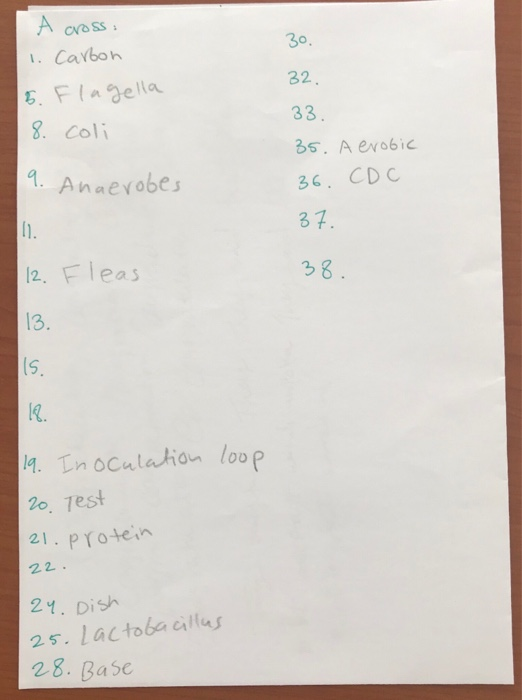 Across:
1. Carbon
5. Flagella
8. coli
9. Anaerobes
11.
12. Fleas
13.
15.
18.
19. Inoculation loop
20. Test
21. protein
22.
24. Dish
25. Lactobacillus
28. Base
30.
32.
33.
35. Aerobic
36. CDC
37.
38.